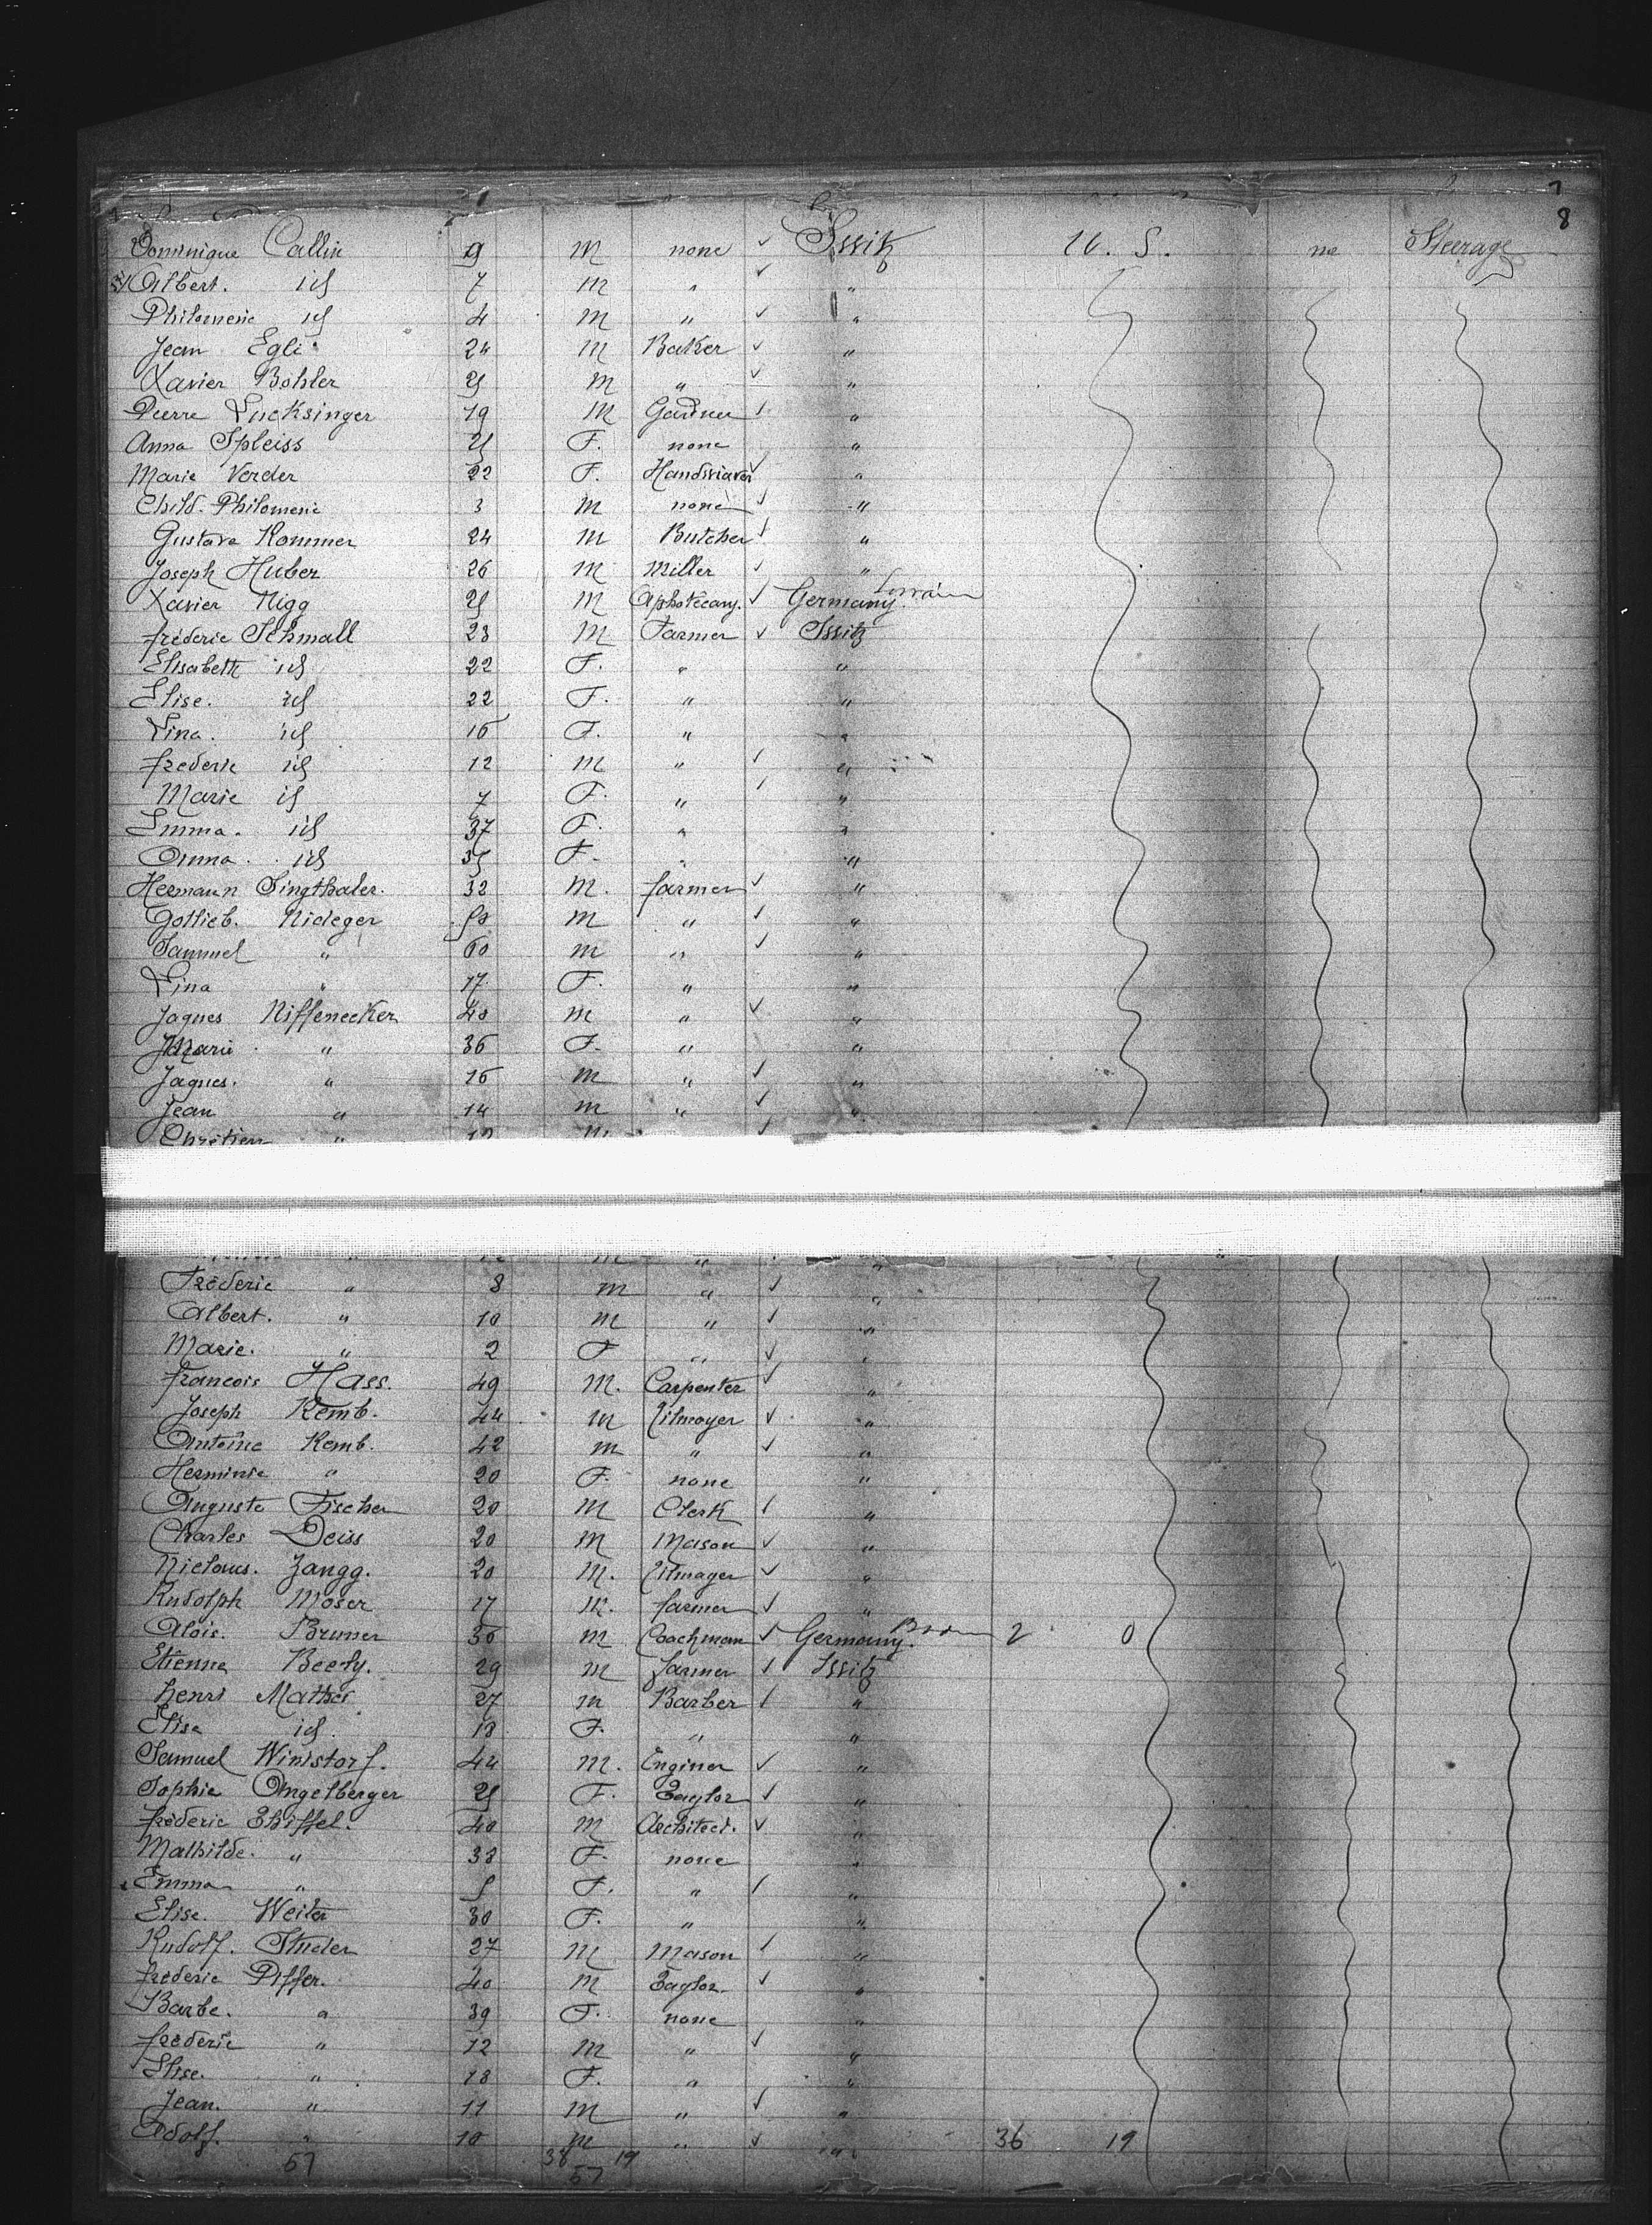 7
8
Dominique Callin 9 M none ✓ Sssitz U. S. no Steerage
Albert. id 7 M " ✓ "
Philomene id 4 M " ✓ "
Jean Egli 24 M Baker ✓ "
Xavier Bohler 25 M " ✓ "
Pierre Lucksinger 19 M Gardner ✓ "
Anna Spleiss 25 F. none "
Marie Verder 22 F. ✓ "
Child. Philomene 3 M none ✓ "
Gustave Kommer 24 M Butcher ✓ "
Joseph Huber 26 M Miller ✓ "
Xavier Nigg 25 M Aphotecary. ✓ Germany. Lorrain
frèderic Schmall 23 M Farmer ✓ Sssitz
Elisabeth id 22 F. " "
Elise. id 22 F. " "
Lina. id 16 F. " "
frederic id 12 M " ✓ "
Marie id 7 F. " ✓ "
Emma. id 37 F. " "
Anna. id 35 F. " "
Hermann Singthaler. 32 M. farmer ✓ "
Gottlieb. Nideger M " ✓ "
Samuel " 60 M " ✓ "
Lina " 17 F. " "
Jaques Niffenecker 40 M " ✓ "
Marie " 36 F. " "
Jaques. " 16 M " ✓ "
Jean " 14 M " ✓ "
Chretien " 12 M ✓
Frèderic " 8 M " ✓ "
Albert. " 10 M " ✓ "
Marie. " 2 F " ✓ "
francois Hass. 49 M. Carpenter ✓ "
Joseph Kemb. 44 M ✓ "
Antoine Kemb. 42 M " ✓ "
Herminie " 20 F. none "
Auguste Fischer 20 M Clerk ✓ "
Charles Deiss 20 M Mason ✓ "
Niclaus. Zangg. 20 M. ✓ "
Rudolph Moser 17 M. farmer ✓ "
Alois. Bruner 36 M Coachman ✓ Germany. 2 0
Etienne Beety. 29 M farmer ✓ Sssitz
henri Mathes 27 M Barber ✓ "
Elise id. 18 F. " "
Samuel Winistorf. 44 M. Enginer ✓ "
Sophie Angelberger 25 F. Taylor ✓ "
frèderic Thiffel. 40 M Architect. ✓ "
Mathilde. " 38 F. none "
Emma " 5 F. " ✓ "
Elise. Weiter 30 F. " "
Rudolf. Studer 27 M Mason ✓ "
frèderic Piffer. 40 M Taylor. ✓ "
Barbe. " 39 F. none "
frèderic " 12 M " ✓ "
Elise. " 18 F. " "
Jean. " 11 M " ✓ "
Adolf. " 10 M " ✓ " 36 19
57 38 19
57